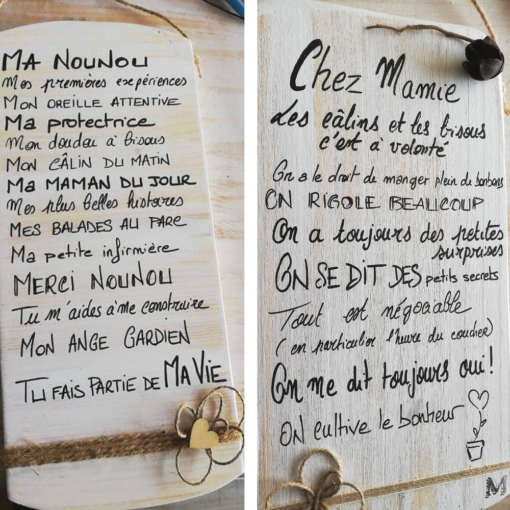 MA NOUNOU
Mes premières expériences
MON OREILLE ATTENTIVE
Ma protectrice
Mon doudou à bisous
MON CÂLIN DU MATIN
Ma MAMAN DU JOUR
Mes plus belles histoires
MES BALADES AU PARC
Ma petite infirmière
MERCI NOUNOU
Tu m'aides à me construire
MON ANGE GARDIEN
TU FAIS PARTIE DE MA VIE
Chez Mamie
Les câlins et les bisous
c'est à volonté
On a le droit de manger plein de bonbons
ON RIGOLE BEAUCOUP
On a toujours des petites
surprises
ON SE DIT DES petits secrets
Tout est négociable
(en particulier l'heure du coucher)
On me dit toujours oui!
ON cultive le bonheur
M